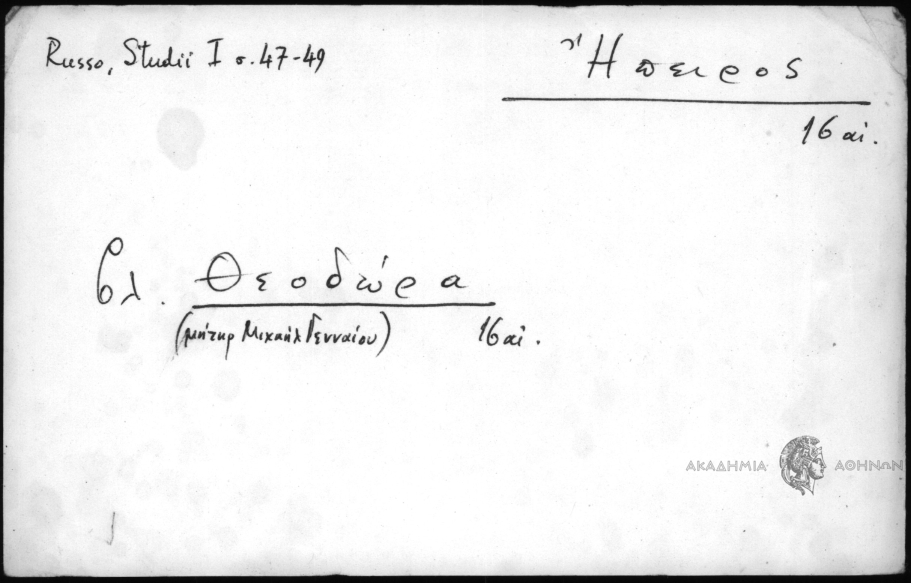 Russo, Studii I σ. 47-49
Ἤπειρος
16 αἰ.
βλ. Θεοδώρα
(μήτηρ Μιχαὴλ Γενναίου) 16 αἰ.
ΑΚΑΔΗΜΙΑ ΑΘΗΝΩΝ